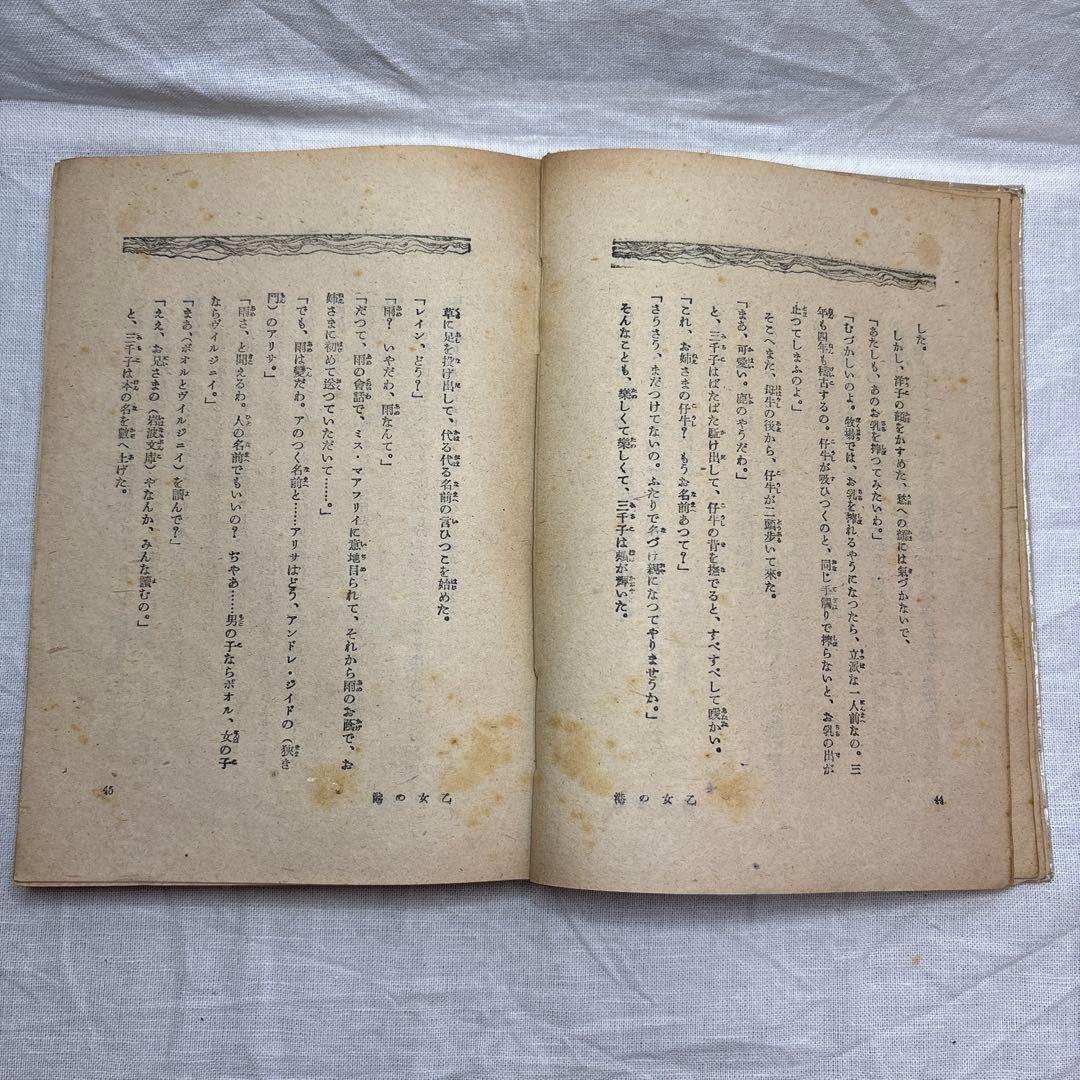 した。
しかし、洋子の顔をかすめた、愁への翳には氣づかないで、
「あたしも、あのお乳を搾つてみたいわ。」
「むづかしいのよ。牧場では、お乳を搾れるやうになつたら、立派な一人前なの。三
年も四年も稽古するの。仔牛が吸ひつくのと、同じ手觸りで搾らないと、お乳の出が
止つてしまふのよ。」
そこへまた、母牛の後から、仔牛が二頭歩いて來た。
「まあ、可愛い。鹿のやうだわ。」
と、三千子はばたばた駈け出して、仔牛の背を撫でると、すべすべして暖かい。
「これ、お姉さまの仔牛？　もうお名前あつて？」
「さうさう、まだつけてないの。ふたりで名づけ親になつてやりませうか。」
そんなことも、樂しくて樂しくて、三千子は頰が輝いた。
乙女の港
44
草に足を投げ出して、代る代る名前の言ひつこを始めた。
「レイン、どう？」
「雨？　いやだわ、雨なんて。」
「だつて、雨の會話で、ミス・マアフリイに意地目られて、それから雨のお蔭で、お
姉さまに初めて送つていただいて……。」
「でも、雨は變だわ。アのつく名前と……アリサはどう、アンドレ・ジイドの（狹き
門）のアリサ。」
「雨さ、と聞えるわ。人の名前でもいいの？　ぢやあ……男の子ならポオル、女の子
ならヴイルジニイ。」
「まあ、（ポオルとヴイルジニイ）を讀んで？」
「ええ、お兄さまの（岩波文庫）やなんか、みんな讀むの。」
と、三千子は本の名を數へ上げた。
乙女の港
45